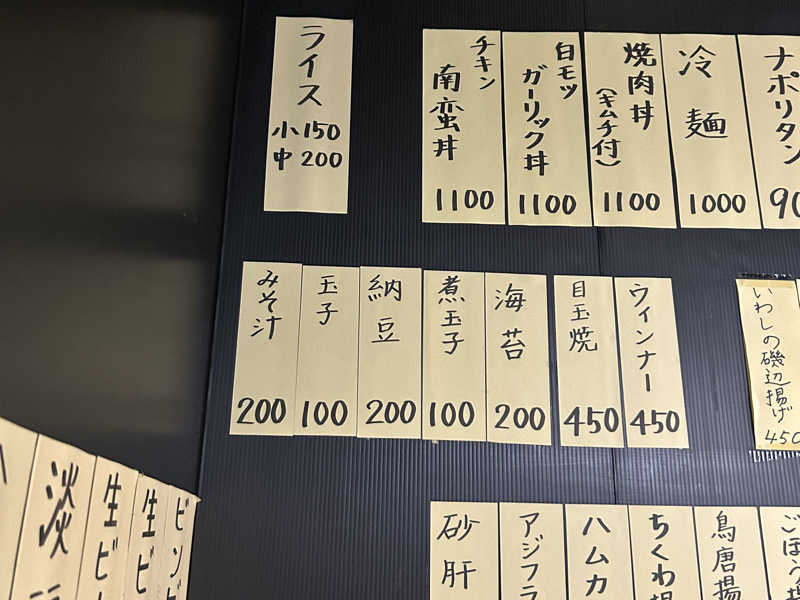 ライス
小150
中200
チキン
南蛮丼
1100
白モツ
ガーリック丼
1100
焼肉丼
(キムチ付)
1100
冷麺
1000
ナポリタン
みそ汁
200
玉子
100
納豆
200
煮玉子
100
海苔
200
目玉焼
450
ウィンナー
450
いわしの磯辺揚げ
450
砂肝
アジフラ
ハムカ
ちくわ
鳥唐揚
ごぼう
淡
生ビ
生ビ
ビン